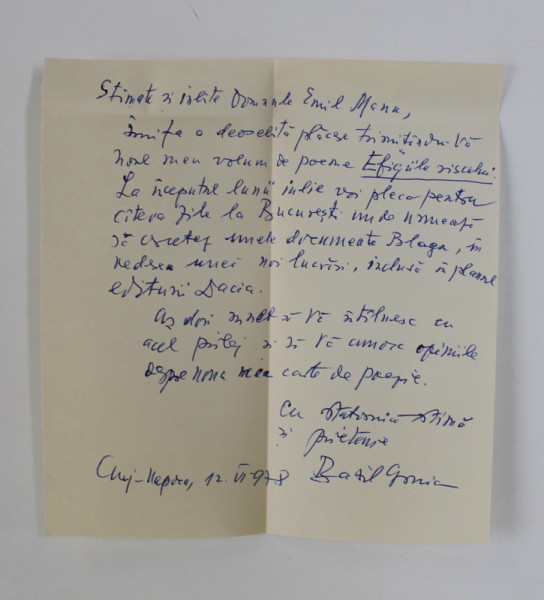 Stimate și iubite Domnule Emil Manu,
Îmi fac o deosebită plăcere trimițîndu-Vă
noul meu volum de poeme Efigiile viscolului.
La începutul lunii iulie voi pleca pentru
cîteva zile la București unde urmează
să cercetez unele documente Blaga, în
vederea unei noi lucrări, inclusă în planul
editurii Dacia.
Aș dori mult să Vă întîlnesc cu
acel prilej și să Vă cunosc opiniile
despre noua mea carte de poezie.
Cu statornică stimă
și prietenie
Cluj-Napoca, 12. VI 978 Basil Gruia